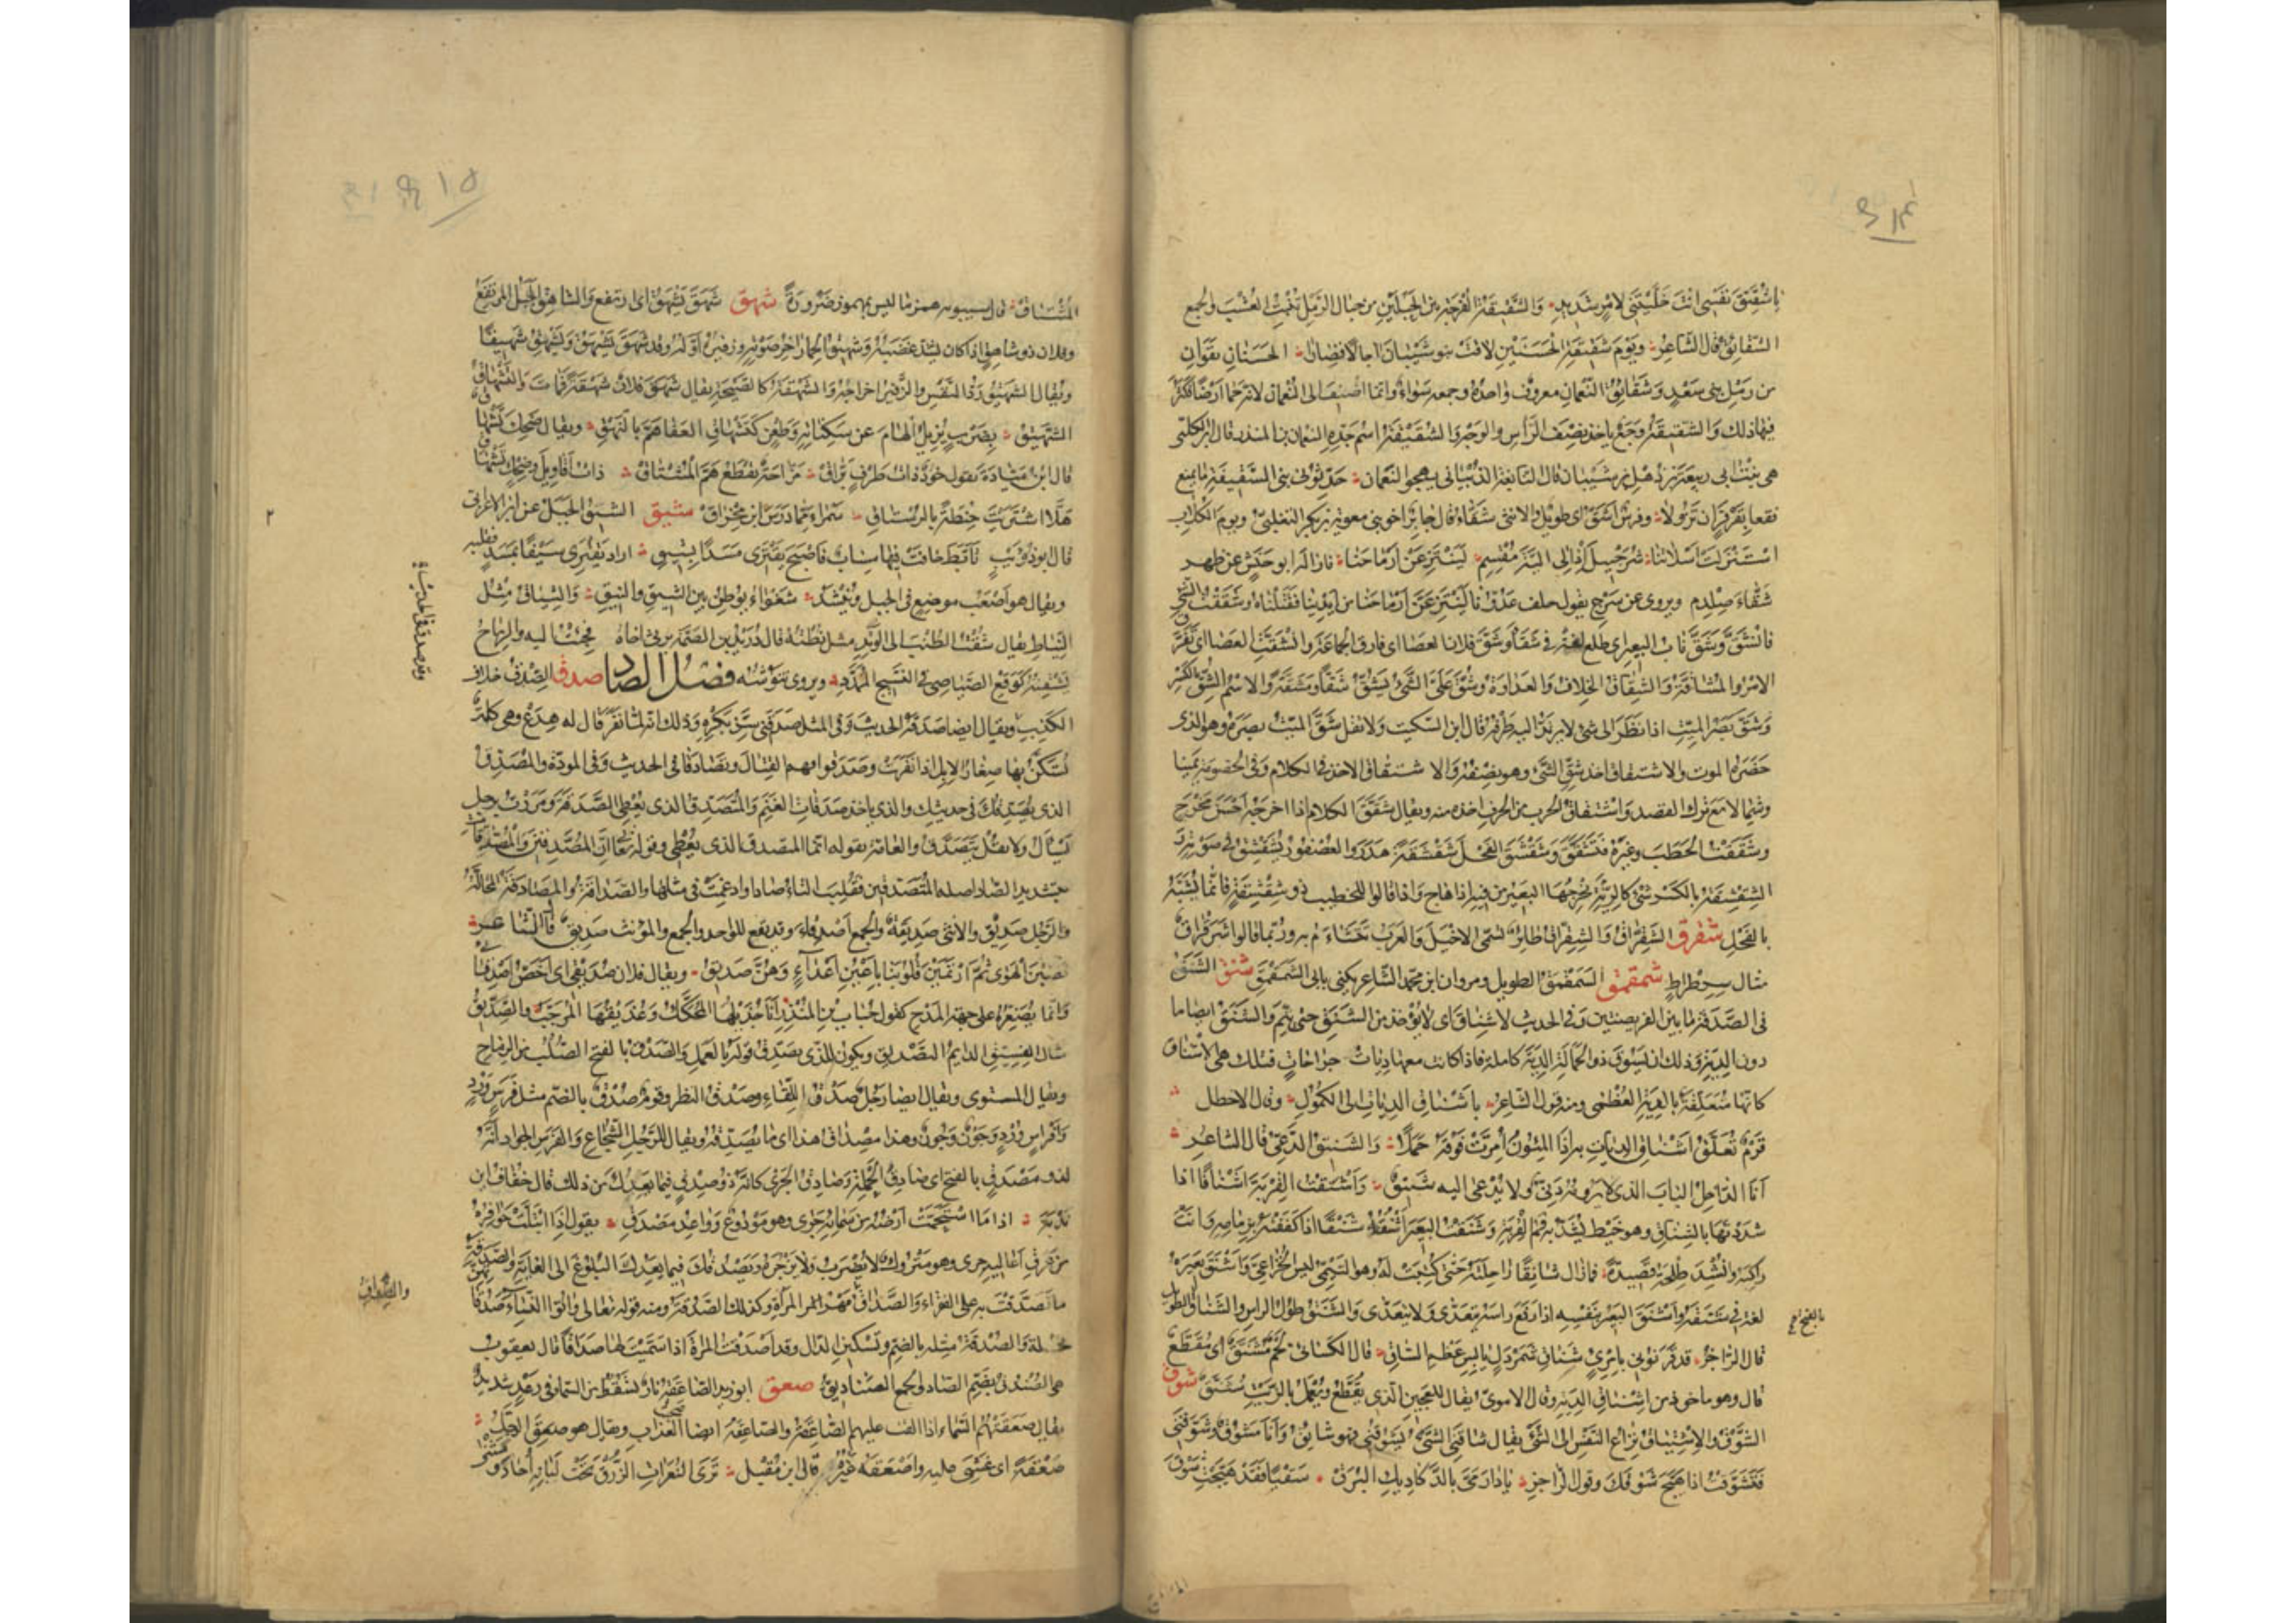 ياشقيق نفسي انت خليتني لامر شديد والشقيقة الفرجة بين الجبلين من حبال الرمل تنبت العشب والجمع
الشقائق قال الشاعر ويوم شقيقة الحسنين لاقت بنو شيبان آجالا قصارا الحسنان نقوان
من رمل بني سعد وشقائق النعمان معروف واحده وجمعه سواء وانما اضيف الى النعمان لانه حما ارضا فكثر
فيها ذلك والشقيقة وجع ياخذ نصف الراس والوجه والشقيقة اسم جدة النعمان بن المنذر قال ابن الكلبي
هي بنت ابي ربيعة بن ذهل بن شيبان قال النابغة الذبياني يهجو النعمان حدثوني بني الشقيقة ما يمنع
فقعا بقرقر ان تزولا وفرس اشق اي طويل والانثى شقاء قال جابر اخو بني معوية بن بكر التغلبي ويوم الكلاب
استنزلت اسلاتنا شرحبيل اذ الى الية مقسم لينتزعن ارماحنا فازاله ابو حنش عن ظهر
شقاء صلدم ويروى عن سرج يقول حلف عدونا لينتزعن ارماحنا من ايدينا فقتلناه وشققت الشي
فانشق وشق ناب البعير اي طلع لغة في شقا وشق فلان العصا اي فارق الجماعة وانشقت العصا اي تفرق
الامر والمشاقة والشقاق الخلاف والعداوة وشق علي الشئ يشق شقا ومشقة والاسم الشق بالكسر
وشق بصر الميت اذا نظر الى شئ لا يرتد اليه طرفه قال ابن السكيت ولا تقل شق الميت بصره وهو الذي
حضره الموت والاشتقاق اخذ شق الشئ وهو نصفه والاشتقاق الاخذ في الكلام وفي الخصومة يمينا
وشمالا مع ترك القصد واشتقاق الحرف من الحرف اخذه منه ويقال شقق الكلام اذا اخرجه احسن مخرج
وشققت الحطب وغيره فتشقق وشقشق الفحل شقشقة هدر والعصفور يشقشق في صوته
الشقشقة بالكسر شئ كالرية يخرجها البعير من فيه اذا هاج واذا قالوا للخطيب ذو شقشقة فانما يشبه
بالفحل شقرق الشقراق والشقراق طائر يسمى الاخيل والعرب تتشاءم به وربما قالوا شرقراق
مثال سرطراط شمقمق الشمقمق الطويل ومروان ابن محمد الشاعر يكنى بابي الشمقمق شنق الشنق
في الصدقة ما بين الفريضتين وفي الحديث لا شناق اي لا يؤخذ من الشنق حتى يتم والشنق ايضا ما
دون الدية وذلك ان يسوق ذو الحمالة الدية كاملة فاذا كانت معها ديات جراحات فتلك هي الاشناق
كانها متعلقة بالدية العظمى ومنه قول الشاعر باشناق الديات الى الكمول وقال الاخطل
قرم تعلق اشناق الديات به اذا المئون امرت فوقه حملا والشنيق الدعي قال الشاعر
انا الداخل الباب الذي لا يرومه دني ولا يدعى اليه شنيق واشنقت القربة اشناقا اذا
شددتها بالشناق وهو خيط يشد به فم القربة وشنقت البعير اشنقه شنقا اذا كففته بزمامه وانت
راكبه وانشد طلحة قصيدة فما زال شانقا راحلته حتى كتبت له وهو التيمي ليس الخزاعي واشنق بعيره
لغة في شنقه واشنق البعير بنفسه اذا رفع راسه يتعدى ولا يتعدى والشنق طول الراس والشناق الطويل
بالفتح
قال الراجز قد قرنوني بامرئ شناق شمردل يابس عظم الساق قال الكسائي لحم مشنق اي مقطع
قال وهو ماخوذ من اشناق الدية وقال الاموي يقال للعجين الذي يقطع ويعمل بالزيت مشنق شوق
الشوق والاشتياق نزاع النفس الى الشئ يقال شاقني الشئ يشوقني فهو شائق وانا مشوق وشوقني
فتشوقت اذا هيج شوقك وقول الراجز يا دار مي بالدكاديك البرق سقيا فقد هيجت شوق
المشتاق قال سيبويه همز ما ليس بمهموز ضرورة شهق شهق يشهق اي ارتفع والشاهق الجبل المرتفع
وفلان ذو شاهق اذا كان يشتد غضبه وشهيق الحمار آخر صوته وزفيره اوله وقد شهق يشهق ويشهق شهيقا
ويقال الشهيق رد النفس والزفير اخراجه والشهقة كالصيحة يقال شهق فلان شهقة فمات والتشهاق
الشهيق بضرب يزيل الهام عن سكناته وطعن كتشهاق العفا هم بالنهق ويقال ضحك تشهاق
قال ابن ميادة تقول خود ذات طرف براق مزاحة تقطع هم المشتاق ذات اقاويل وضحك تشهاق
هلا اشتريت حنطة بالرستاق سمراء مما درس ابن مخراق شيق الشيق الجبل عن ابن الاعرابي
قال ابو ذؤيب تابط خافة فيها مساب فاصبح يقتري مسدا بشيق اراد يقتري شيقا بمسد فقلبه
ويقال هو اصعب موضع في الجبل وينشد شغواء توطن بين الشيق والنيق والشياق مثل
النياط يقال شقت الطنب الى الوتد مثل نطته قال دريد بن الصمة يرثي اخاه فجئت اليه والرماح
ينشنه كوقع الصياصي في النسيج الممدد ويروى تنوشنه فصل الصاد صدق الصدق خلاف
الكذب ويقال ايضا صدقه الحديث وفي المثل صدقني سن بكره وذلك انه لما نفر قال له هدع وهي كلمة
وقد صدق في الحديث
تسكن بها صغار الابل اذا نفرت وصدقوهم القتال وتصادقا في الحديث وفي المودة والمصدق
الذي يصدقك في حديثك والذي ياخذ صدقات الغنم والمتصدق الذي يعطي الصدقة ومررت برجل
يسال ولا تقل يتصدق والعامة تقوله انما المتصدق الذي يعطي وقوله تعا ان المصدقين والمصدقات
بتشديد الصاد اصله المتصدقين فقلبت التاء صادا وادغمت في مثلها والصداقة والمصادقة المخالة
والرجل صديق والانثى صديقة والجمع اصدقاء وقد يقع للواحد والجمع والمؤنث صديق قال الشاعر
نصبن الهوى ثم ارتمين قلوبنا باعين اعداء وهن صديق ويقال فلان صديقي اي اخص اصدقائي
وانما يصغر على جهة المدح كقول حباب بن المنذر انا جذيلها المحكك وعذيقها المرجب والصديق
مثال الفسيق الدائم التصديق ويكون الذي يصدق قوله بالعمل والصدق بالفتح الصلب من الرماح
ويقال المستوى ويقال ايضا رجل صدق اللقاء وصدق النظر وقوم صدق بالضم مثل فرس ورد
وافراس ورد وجون وجون وهذا مصداق هذا اي ما يصدقه ويقال للرجل الشجاع والفرس الجواد انه
لذو مصدق بالفتح اي صادق الحملة وصادق الجري كانه ذو صدق فيما يعدك من ذلك قال خفاف ابن
ندبة اذا ما استحمت ارضه من سمائه جرى وهو مودوع وواعد مصدق يقول اذا ابتلت حوافره
من عرق اعاليه جرى وهو متروك لا يضرب ولا يزجر ويصدقك فيما يعدك البلوغ الى الغاية والصدقة
ما تصدقت به على الفقراء والصداق مهر المراة وكذلك الصدقة ومنه قوله تعالى وآتوا النساء صدقاتهن
والصداق
نحلة والصدقة مثله بالضم وتسكين الدال وقد اصدقت المراة اذا سميت لها صداقا قال يعقوب
هي الصندوق بضم الصاد والجمع الصناديق صعق ابو زيد الصاعقة نار تسقط من السماء في رعد شديد
يقال صعقتهم السماء اذا القت عليهم الصاعقة والصاعقة ايضا صيحة العذاب ويقال هو صعق الصوت
صعقة اي غشي عليه واصعقه غيره قال ابن مقبل ترى النعرات الزرق تحت لبانه احاد و